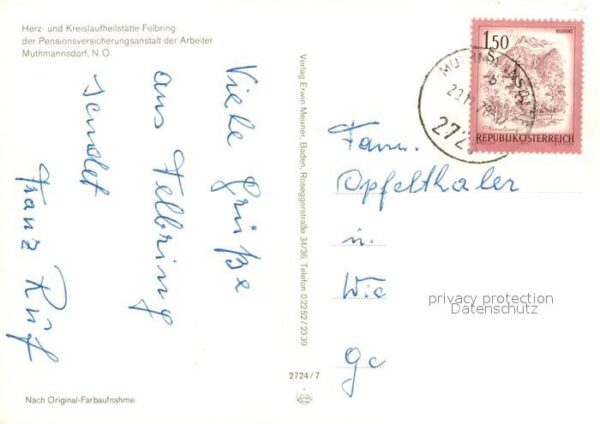 Herz- und Kreislaufheilstätte Felbring
der Pensionsversicherungsanstalt der Arbeiter
Muthmannsdorf, N.Ö.
Viele Grüße
aus Felbring
sendet
Franz Ruf
Nach Original-Farbaufnahme
Verlag Erwin Meixner, Baden, Roseggerstraße 34/36, Telefon 0 22 52 / 23 39
2724/7
1,50
S
BLUDENZ
REPUBLIK ÖSTERREICH
272
Fam.
Opfelthaler
in
Wie
gc
privacy protection
Datenschutz